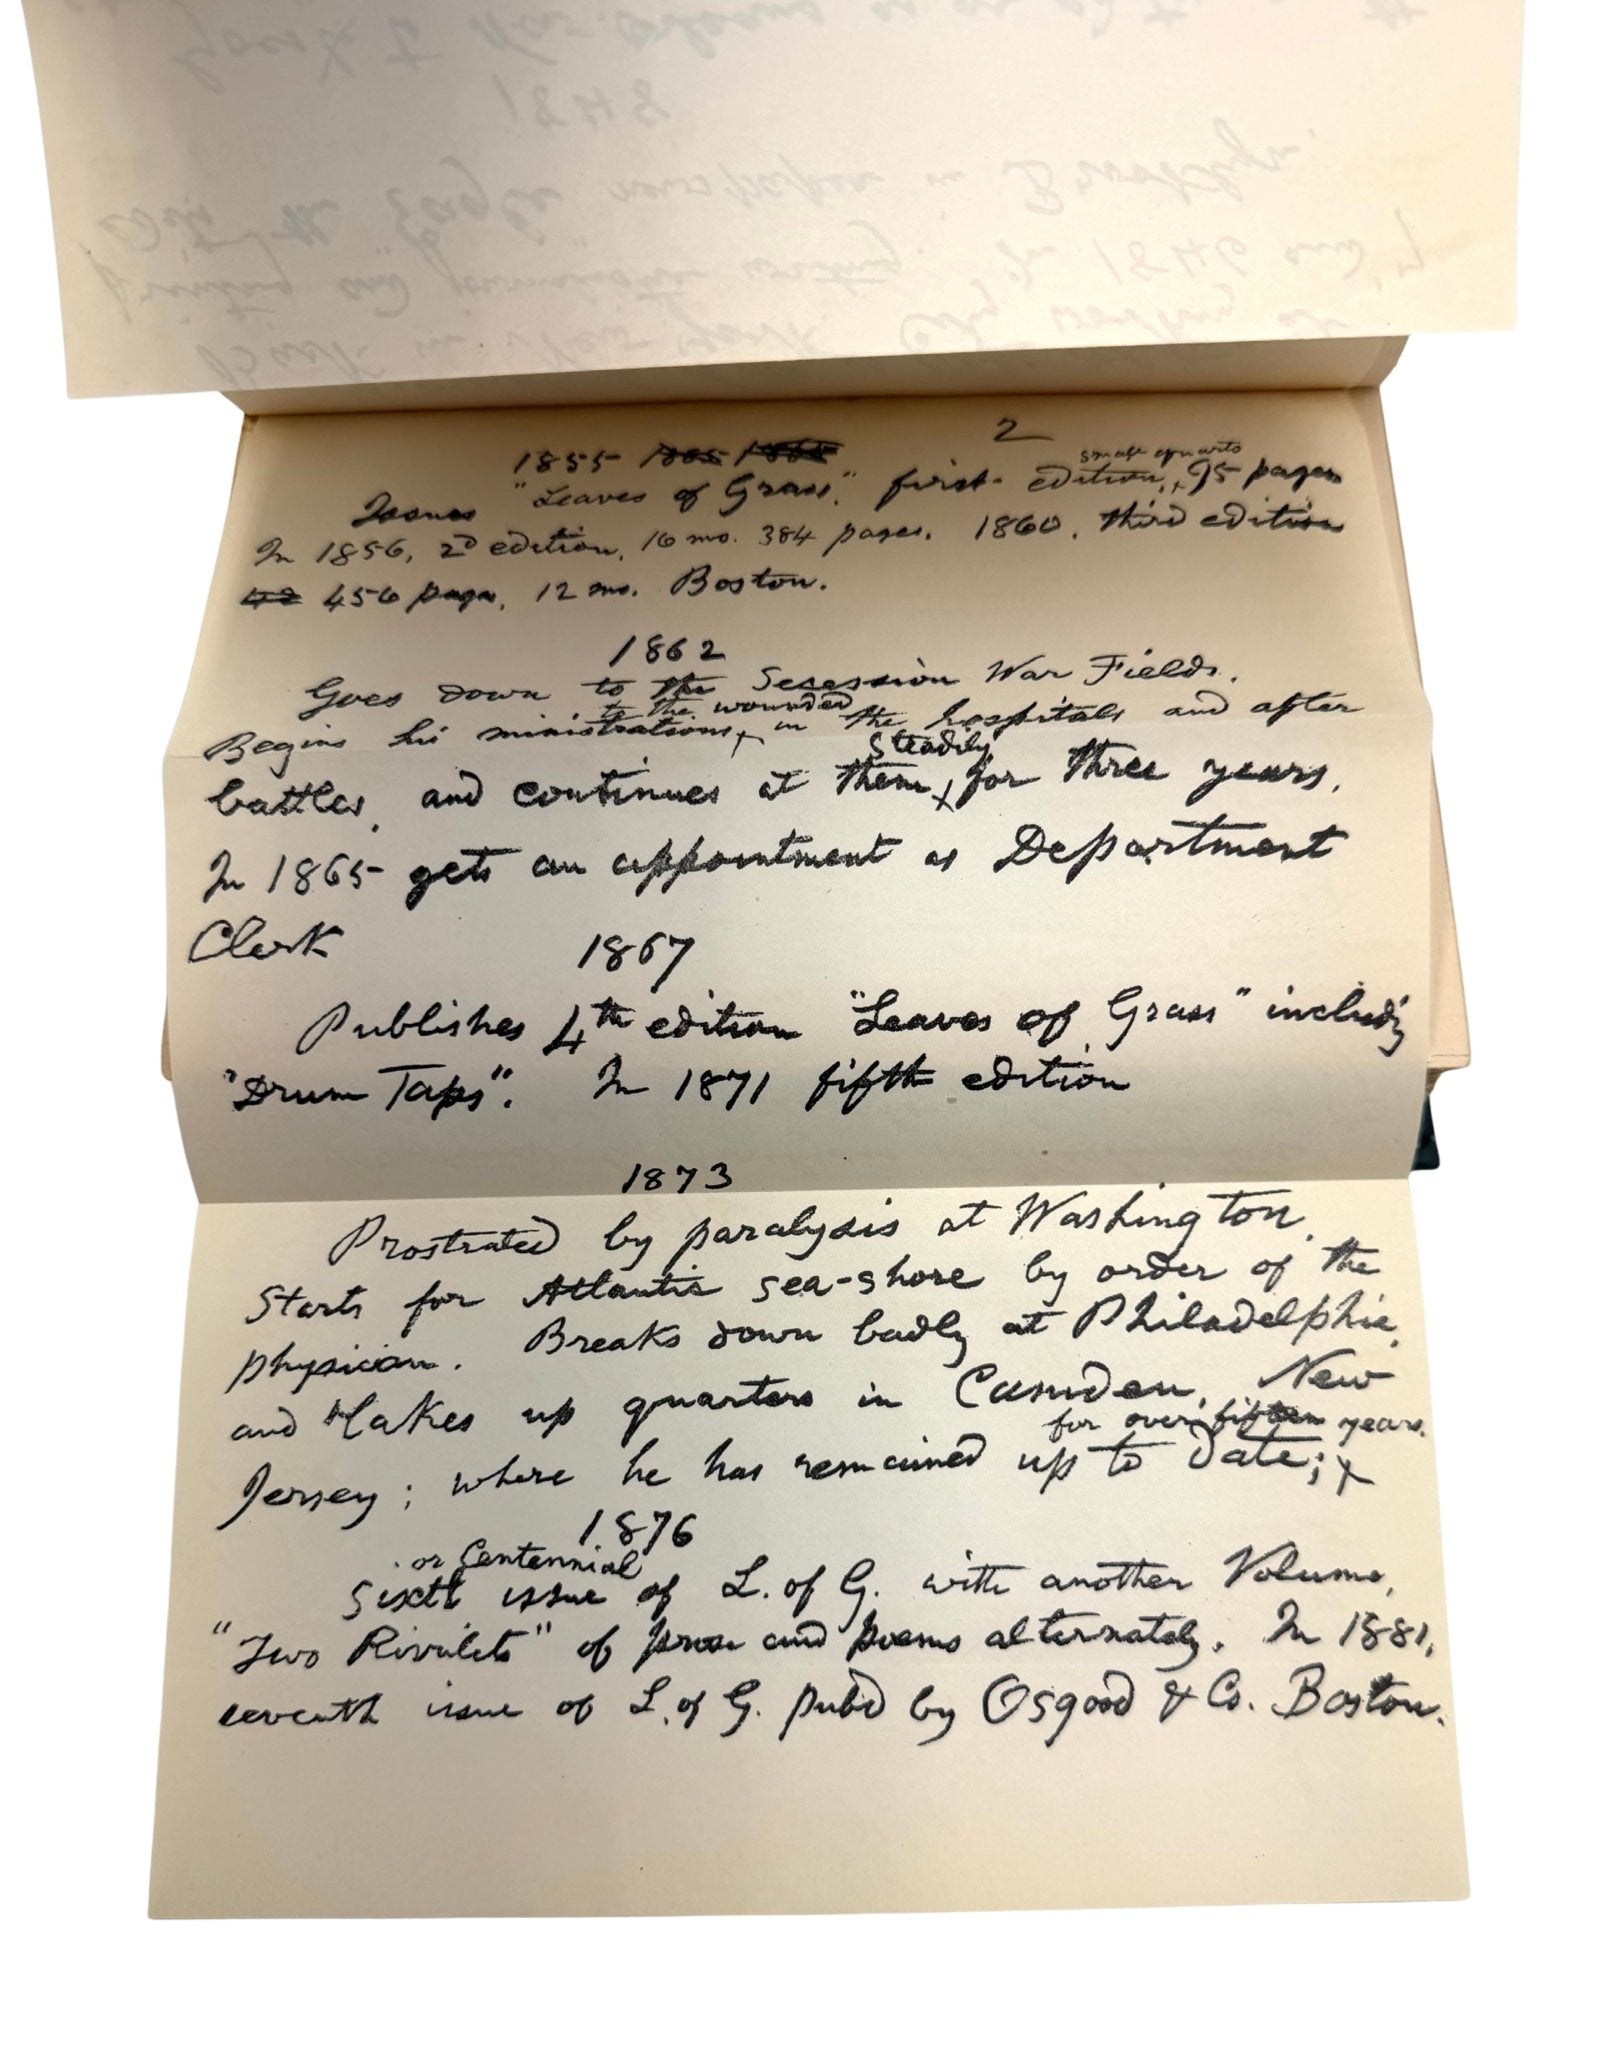 2
1855
small quarto
Issues "Leaves of Grass." first edition, 95 pages
In 1856, 2d edition, 16 mo. 384 pages. 1860, third edition
456 pages, 12 mo. Boston.
1862
Goes down to the Secession War Fields.
to the wounded
Begins his ministrations in the hospitals and after
steadily
battles, and continues at them for three years.
In 1865 gets an appointment as Department
Clerk
1867
Publishes 4th edition "Leaves of Grass" including
"Drum Taps". In 1871 fifth edition
1873
Prostrated by paralysis at Washington.
Starts for Atlantic sea-shore by order of the
physician. Breaks down badly at Philadelphia,
and takes up quarters in Camden, New
for over fifteen years.
Jersey; where he has remained up to date;
1876
or Centennial
Sixth issue of L. of G. with another Volume,
"Two Rivulets" of prose and poems alternately. In 1881,
seventh issue of L. of G. pub'd by Osgood & Co. Boston.